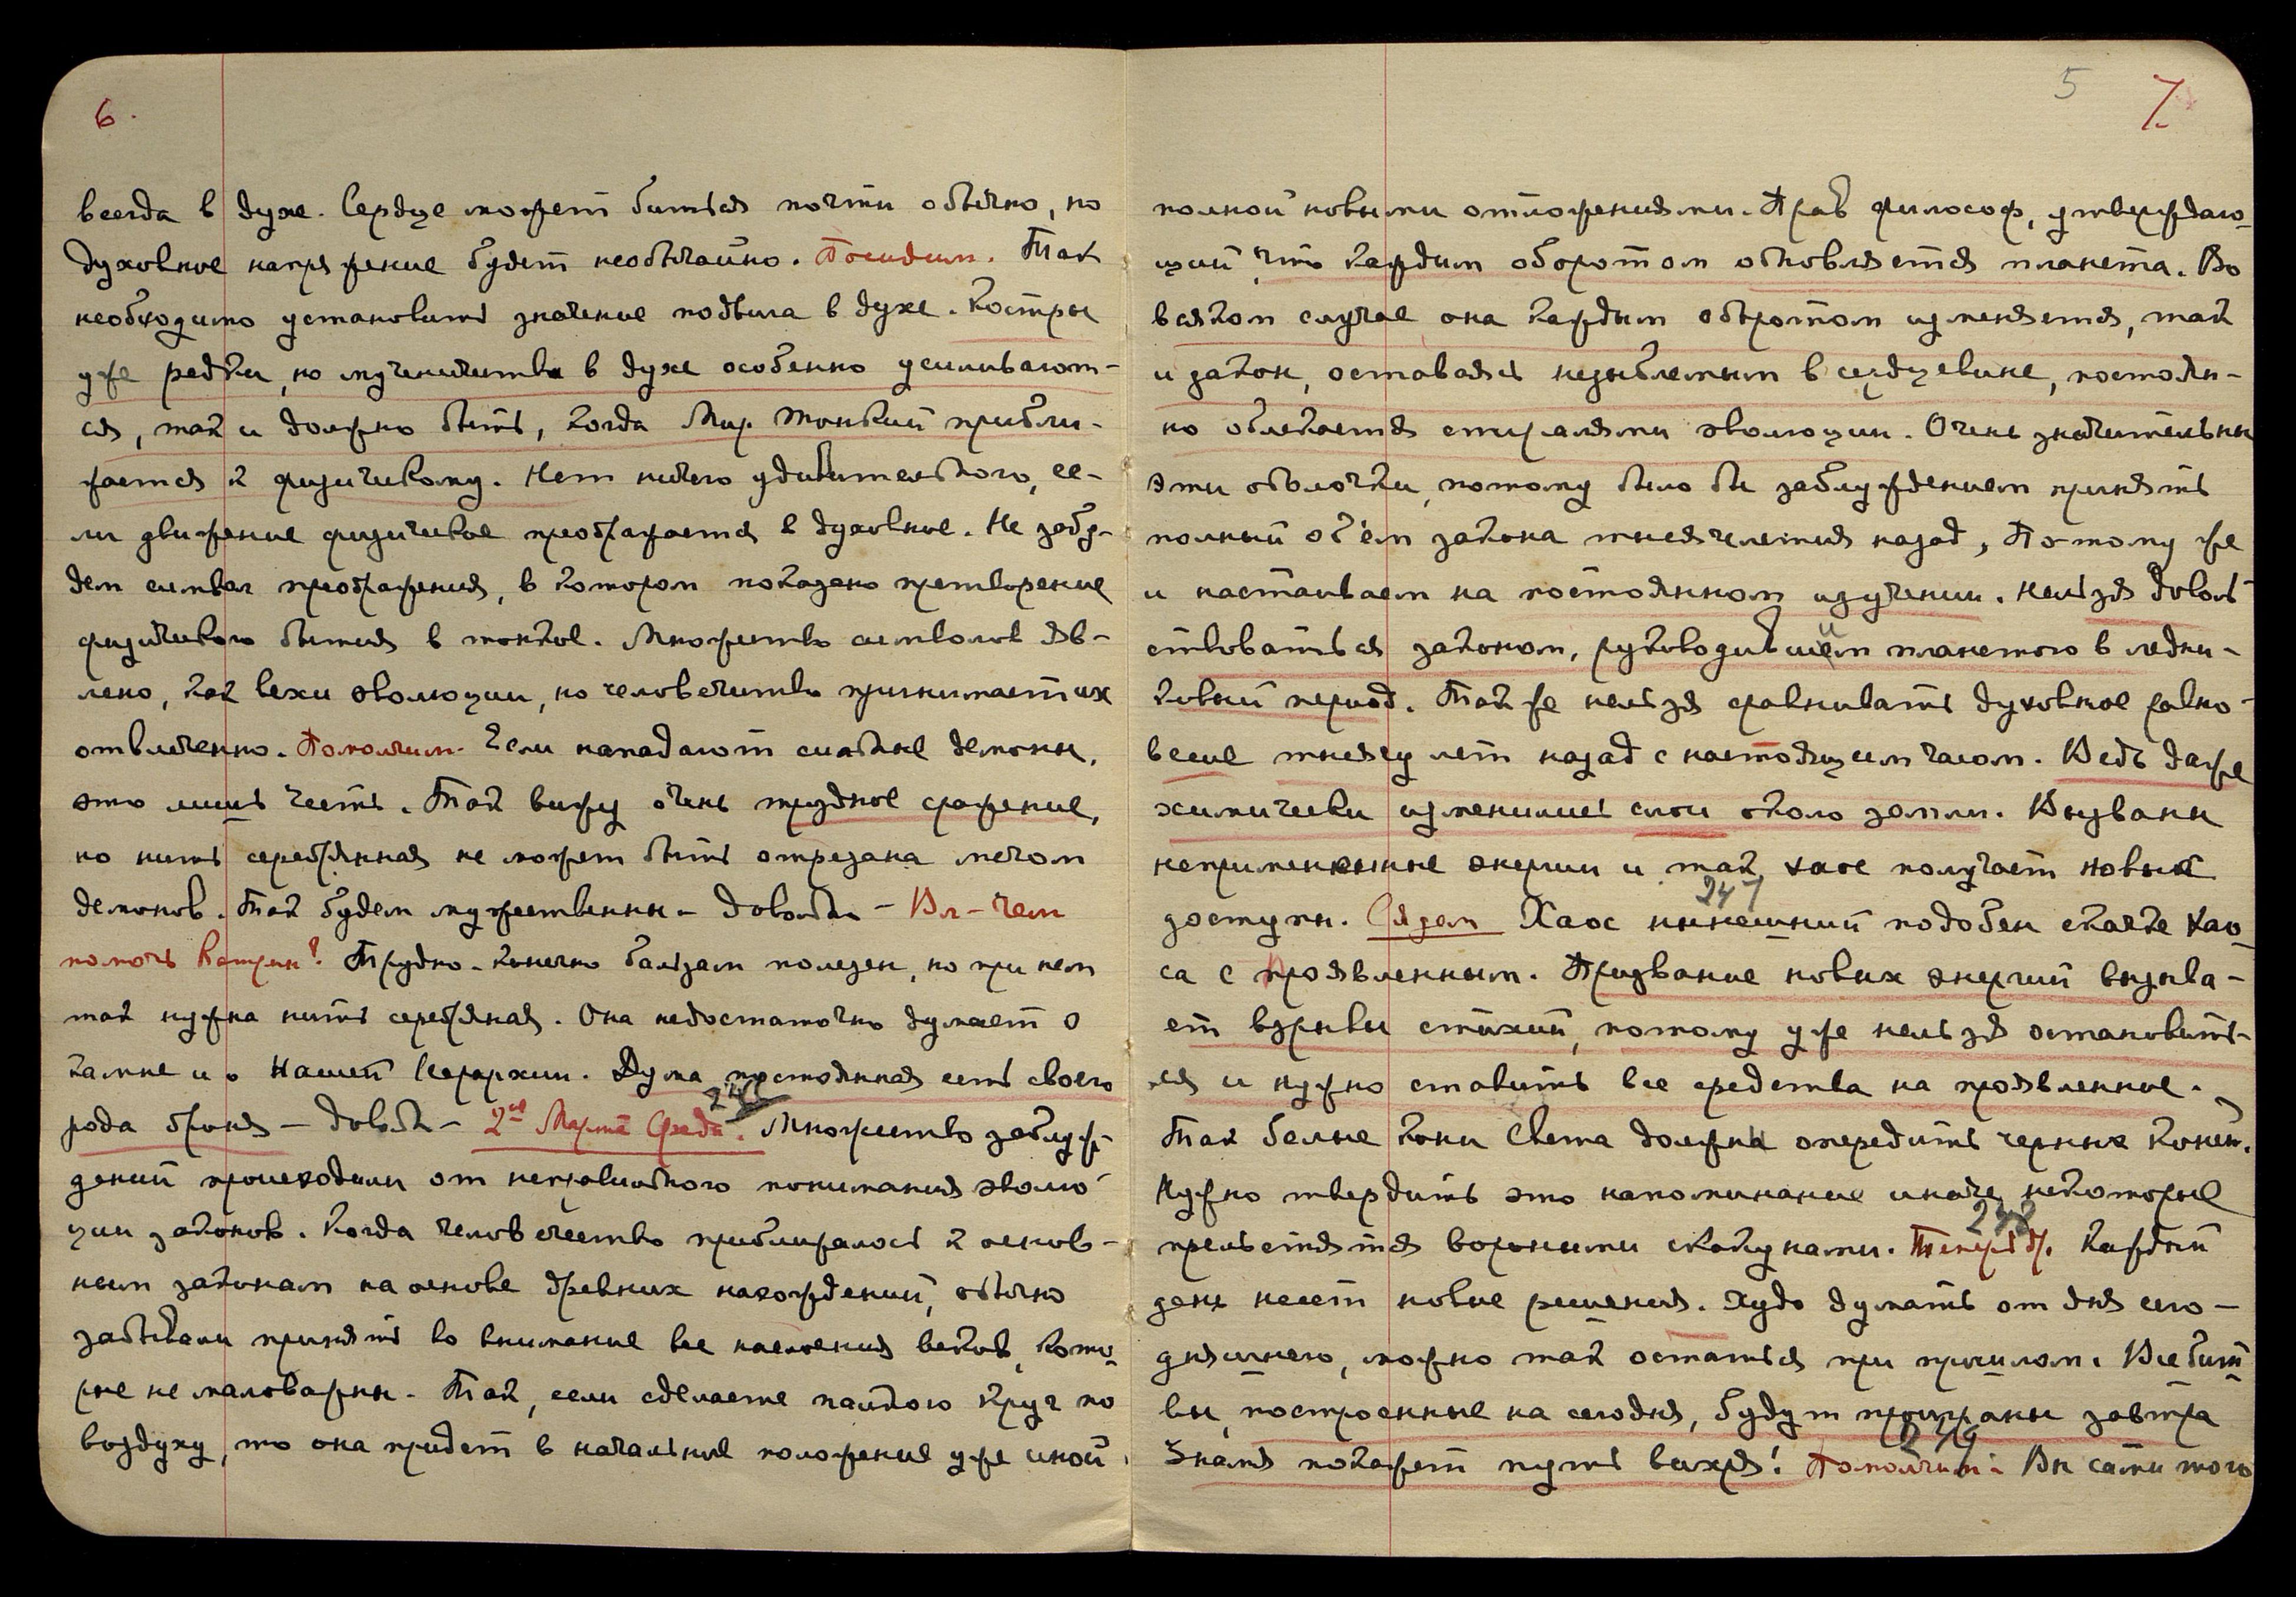 6.
всегда в духе. Сердце может биться почти обычно, но
духовное напряжение будет необычайно. Посидим. Так
необходимо установить значение подвига в духе. Костры
уже редки, но мученичества в духе особенно усиливают-
ся, так и должно быть, когда Мир Тонкий прибли-
жается к физическому. Нет ничего удивительного, ес-
ли движение физическое преображается в духовное. Не забу-
дем символ преображения, в котором показано претворение
физического бытия в тонкое. Множество символов яв-
лено, как вехи эволюции, но человечество принимает их
отвлеченно. Помолчим. Если нападают сильные демоны,
это лишь честь. Так вижу очень трудное сражение,
но нить серебрянная не может быть отрезана мечом
демонов. Так будем мужественны – довольно – Вл – Чем
помочь Кэтрин? Трудно – конечно бальзам полезен, но при нем
так нужна нить серебряная. Она недостаточно думает о
камне и о Нашей Иерархии. Дума постоянная есть своего
рода броня – довольно – 2ое Марта Среда. 246 Множество заблуж-
дений происходили от неправильного понимания эволю-
ции законов. Когда человечество приближалось к основ-
ным законам на основе древних нахождений, обычно
забывали принять во внимание все наслоения веков, кото-
рые не маловажны. Так, если сделаете палкою круг по
воздуху, то она придет в начальное положение уже иной,
5 7.
полной новыми отложениями. Прав философ, утверждаю-
щий, что каждым оборотом обновляется планета. Во
всяком случае она каждым оборотом изменяется, так
и закон, оставаясь незыблемым в сердцевине, постоян-
но облекается спиралями эволюции. Очень значительны
эти оболочки, потому было бы заблуждением принять
полный об'ем закона тысячелетия назад, Потому же
и настаиваем на постоянном изучении. Нельзя доволь-
ствоваться законом, руководившим планетою в ледни-
ковый период. Так же нельзя сравнивать духовное равно-
весие тысячу лет назад с настоящим часом. Ведь даже
химически изменились слои около земли. Вызваны
неприменённые энергии и так хаос получает новые
доступы. Сядем 247 Хаос нынешний подобен скачке хао-
са с проявленным. Призвание новых энергий вызыва-
ет взрывы стихий, потому уже нельзя остановить-
ся и нужно ставить все средства на проявленное.
Так белые кони Света должны опередить черных коней.
Нужно твердить это напоминание иначе некоторые
прельстятся вороными скакунами. Теперь др. 248 Каждый
день несет новые решения. Худо думать от дня сего-
дняшнего, можно так остаться при прошлом. Все бит-
вы, построенные на сегодня, будут проиграны завтра
Знамя покажет путь вихря! Помолчим. 249 Вы сами того